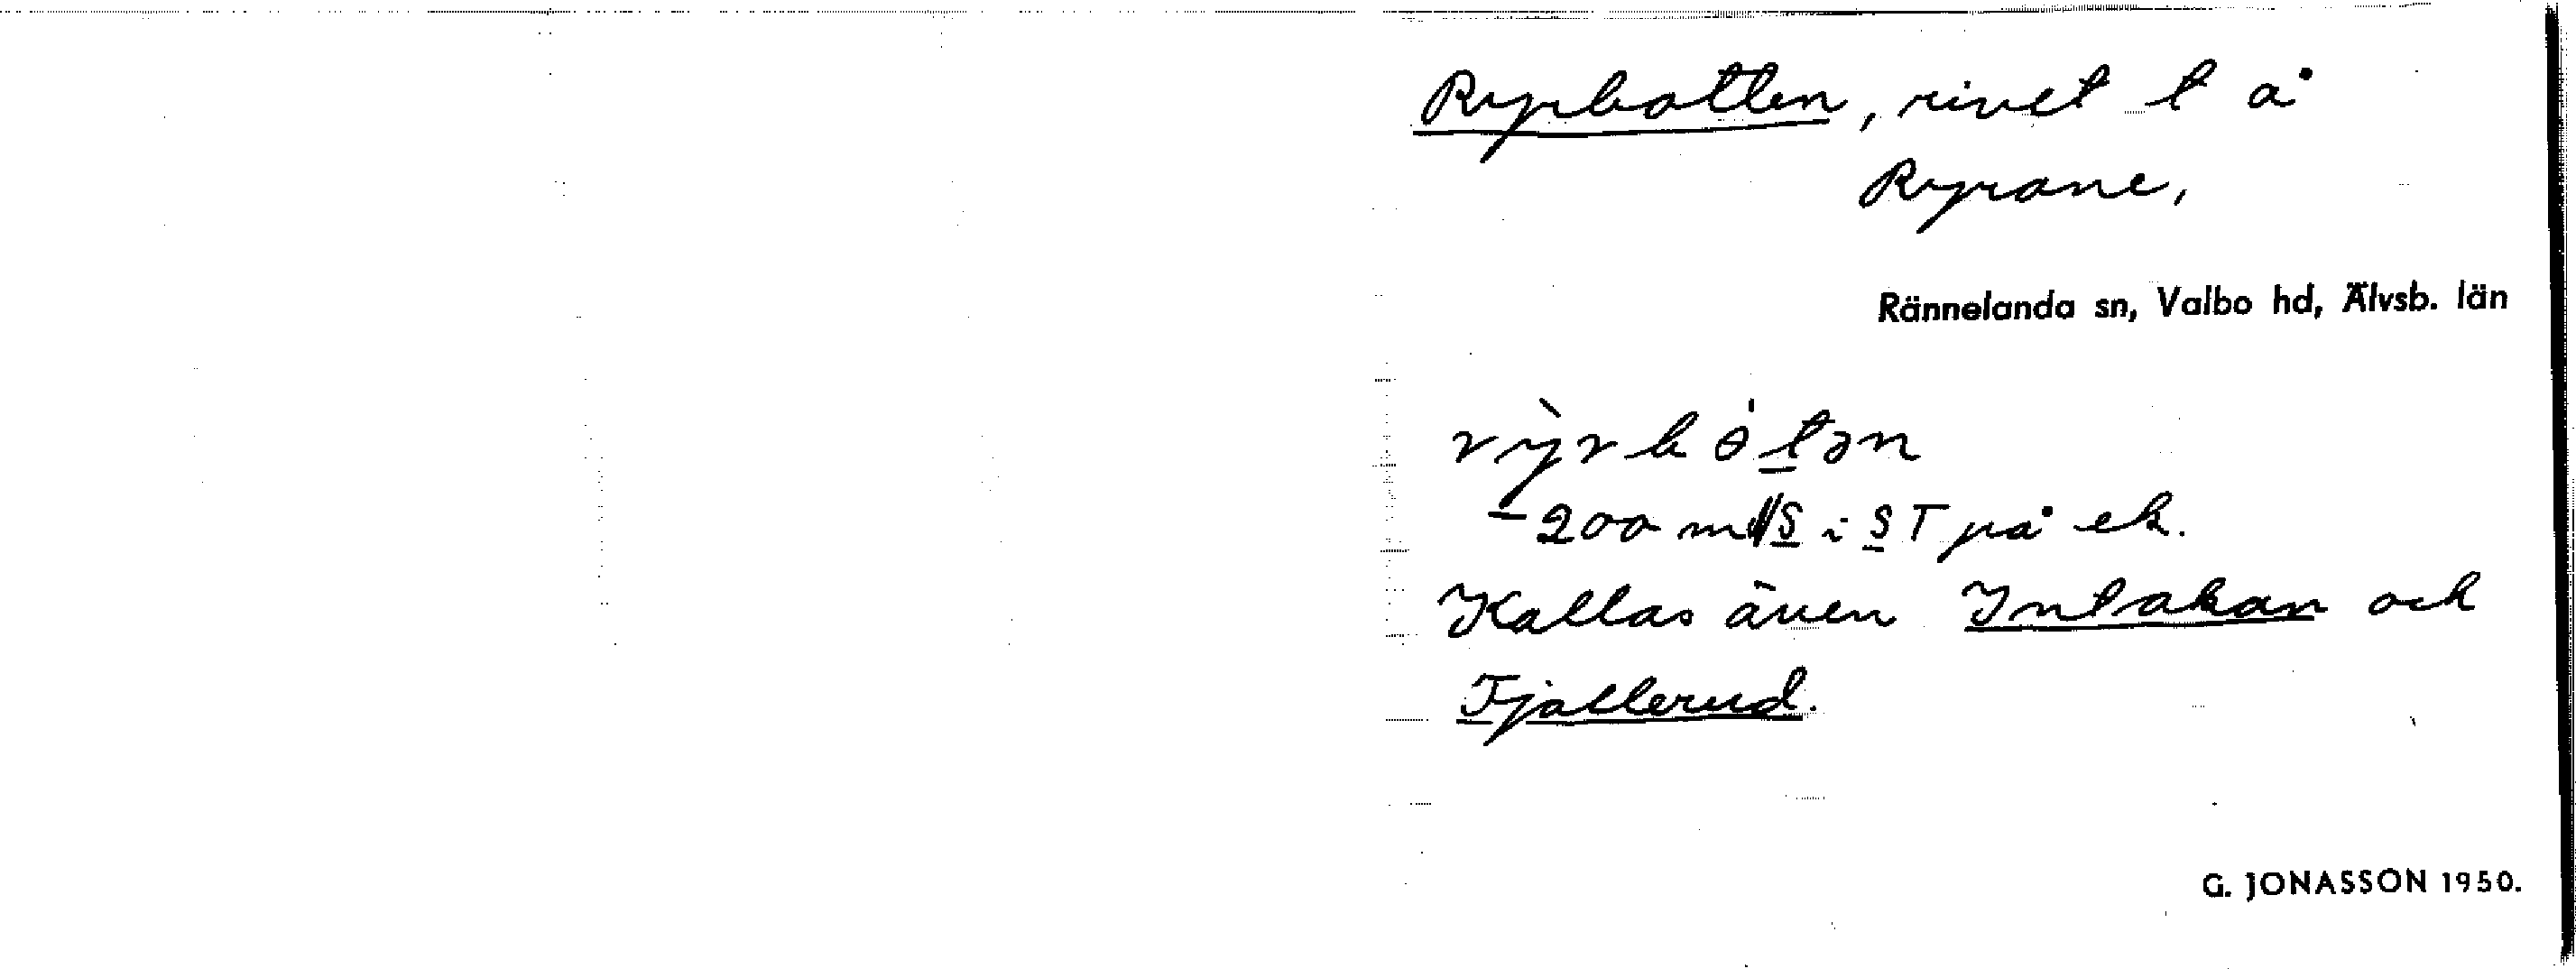 Ryrbotten, rivet t å
Ryrane,
Rännelanda sn, Valbo hd, Älvsb. län
rỳrbótən
200 m S i ST på ek.
Kallas även Intakan och
Tjallerud.
G. JONASSON 1950.